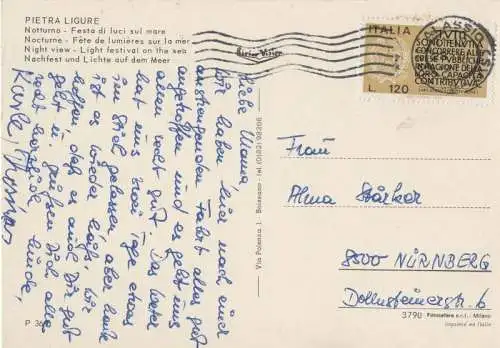 PIETRA LIGURE
Notturno - Festa di luci sul mare
Nocturne - Fête de lumières sur la mer
Night view - Light festival on the sea
Nachtfest und Lichte auf dem Meer
ITALIA
TUTTI
SONO TENUTI A
CONCORRERE ALLE
SPESE PUBBLICHE IN
RAGIONE DELLA
LORO CAPACITÀ
CONTRIBUTIVA
L. 120
Liebe Mama,
wir haben hier nach einer
anstrengenden Fahrt alles gut
angetroffen und es geht uns
allen recht gut. Das Wetter
hat uns zwar Tage etwas
im Stich gelassen, aber heute
ist es wieder schön. Wir
hoffen, daß es auch Dir gut
geht. Grüßen Dich alle
recht herzlich
Via Polenza 1 - Boissano - tel. (0182) 98206
Frau
Alma Stärker
8500 NÜRNBERG
Dollnsteinerstr. 6
3790 Fotocelere s.r.l. - Milano
Imprimé en Italie
P 36